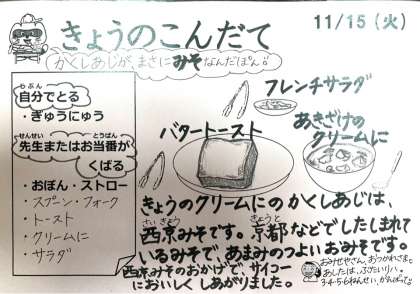 きょうのこんだて
11/15（火）
かくしあじが、まさにみそなんだぽん。
自分でとる
じぶん
・ぎゅうにゅう
先生またはお当番が
せんせい とうばん
くばる
・おぼん・ストロー
・スプーン・フォーク
・トースト
・クリームに
・サラダ
フレンチサラダ
バタートースト
あきざけの
クリームに
きょうのクリームにのかくしあじは、
西京みそです。京都などでしたしまれて
さいきょう きょうと
いるみそで、あまみのつよいおみそです。
西京みそのおかげで、サイコー
においしくしあがりました。
おみせやさん、おつかれさま。
あしたは、ふたいりい。
3・4・5・6ねんせい、がんばって